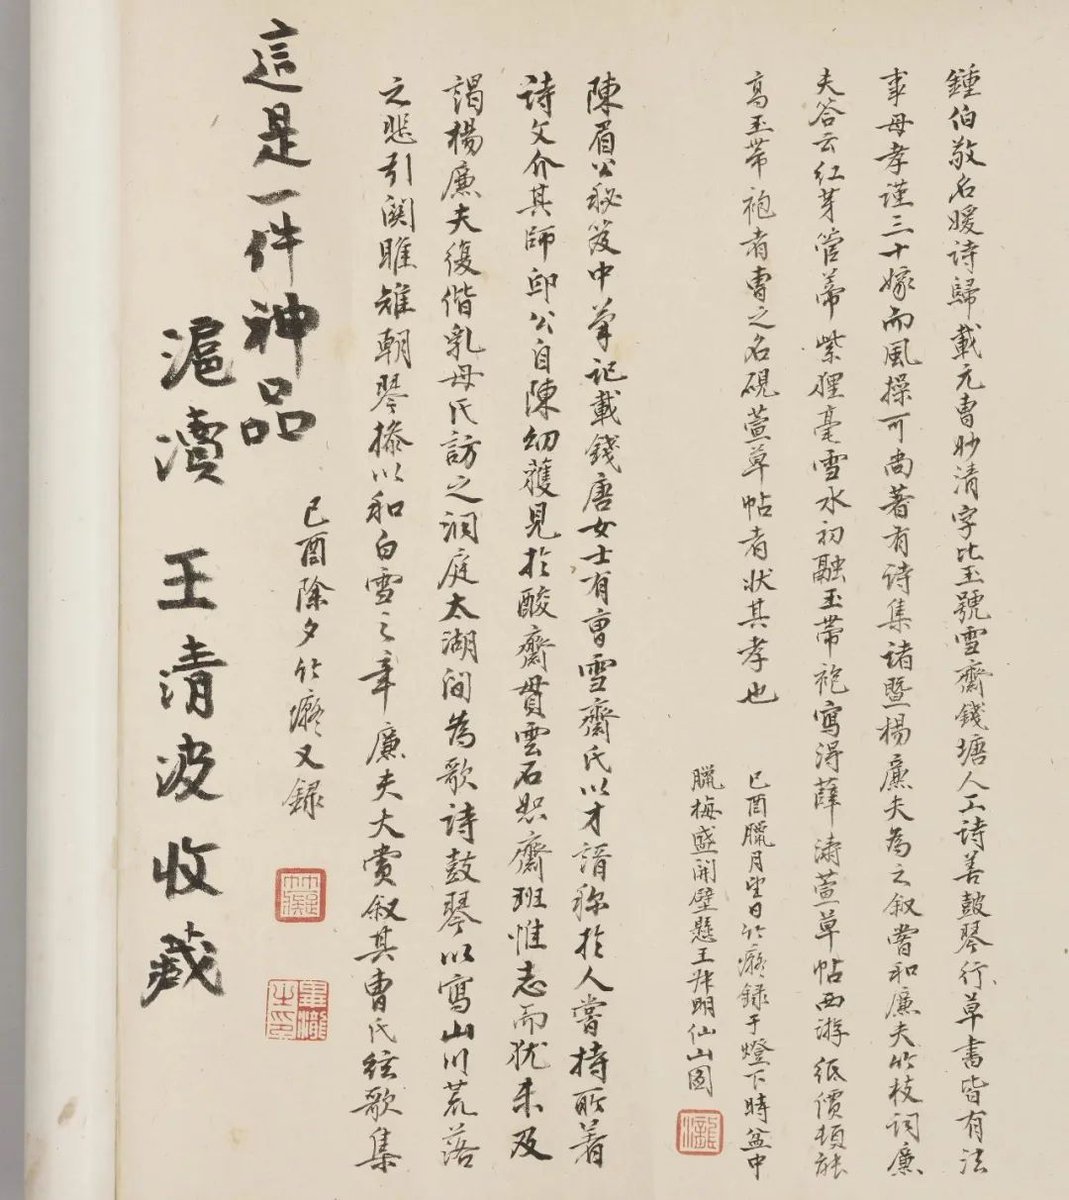 鍾伯敬名媛詩歸載元曹妙清字比玉號雪齋錢塘人工詩善鼓琴行草書皆有法
事母孝謹三十嫁而風操可尚著有詩集諸暨楊廉夫為之叙嘗和廉夫竹枝詞廉
夫答云紅芽管蒂紫狸毫雪水初融玉帶袍寫得薛濤萱草帖西游紙價頓能
高玉帶袍者曹之名硯萱草帖者狀其孝也
己酉臘月望日竹癡錄于燈下時盆中
臘梅盛開壁懸王叔明仙山圖
陳眉公秘笈中筆記載錢唐女士有曹雪齋氏以才諝稱於人嘗持所著
詩文介其師邱公自陳幼獲見於酸齋貫雲石恕齋班惟志而猶未及
謁楊廉夫復偕乳母氏訪之洞庭太湖間為歌詩鼓琴以寫山川荒落
之悲引關雎雉朝琴操以和白雪之章廉夫大賞叙其曹氏絃歌集
己酉除夕竹癡又録
這是一件神品
滬瀆王清波收藏